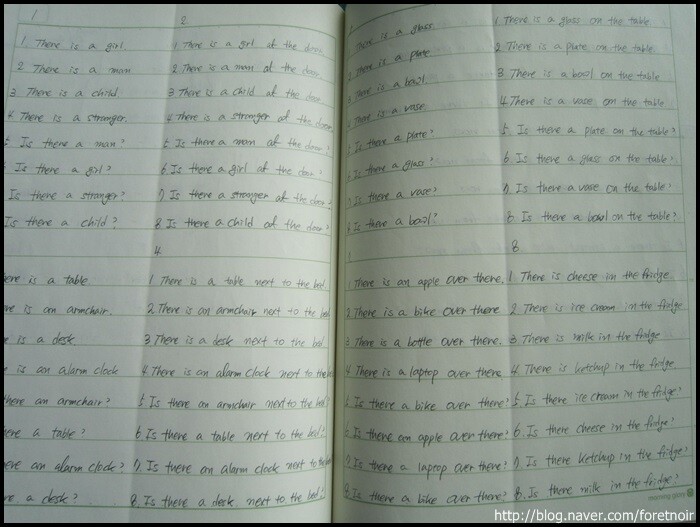 1
1 There is a girl
2 There is a man
3 There is a child
4 There is a stranger.
5 Is there a man?
6 Is there a girl?
Is there a stranger?
Is there a child?
2
1 There is a girl at the door.
2 There is a man at the door
3 There is a child at the door
4 There is a stranger at the door
5 Is there a man at the door?
6 Is there a girl at the door?
7 Is there a stranger at the door?
8 Is there a child at the door?
ere is a table
ere is an armchair.
e is a desk
e is an alarm clock
here an armchair?
ere a table?
ere an alarm clock?
re a desk?
4
1 There is a table next to the bed.
2 There is an armchair next to the bed.
3 There is a desk next to the bed.
4. There is an alarm clock next to the bed
5 Is there an armchair next to the bed?
6 Is there a table next to the bed?
7. Is there an alarm clock next to the bed
8. Is there a desk next to the bed?
There is a glass.
There is a plate.
There is a bowl.
There is a vase.
Is there a plate?
Is there a glass?
Is there a vase?
Is there a bowl?
1 There is a glass on the table
2 There is a plate on the table
3 There is a bowl on the table
4 There is a vase on the table
5 Is there a plate on the table?
6 Is there a glass on the table?
7. Is there a vase on the table?
8 Is there a bowl on the table?
1 There is an apple over there.
2. There is a bike over there
3 There is a bottle over there.
4 There is a laptop over there
5 Is there a bike over there?
6 Is there an apple over there?
7. Is there a laptop over there?
8. Is there a bike over there?
8
1 There is cheese in the fridge
2 There is ice cream in the fridge
3 There is milk in the fridge
4. There is ketchup in the fridge
5. Is there ice cream in the fridge?
6. Is there cheese in the fridge?
7. Is there ketchup in the fridge?
8. Is there milk in the fridge?
morning glory
http://blog.naver.com/foretnoir